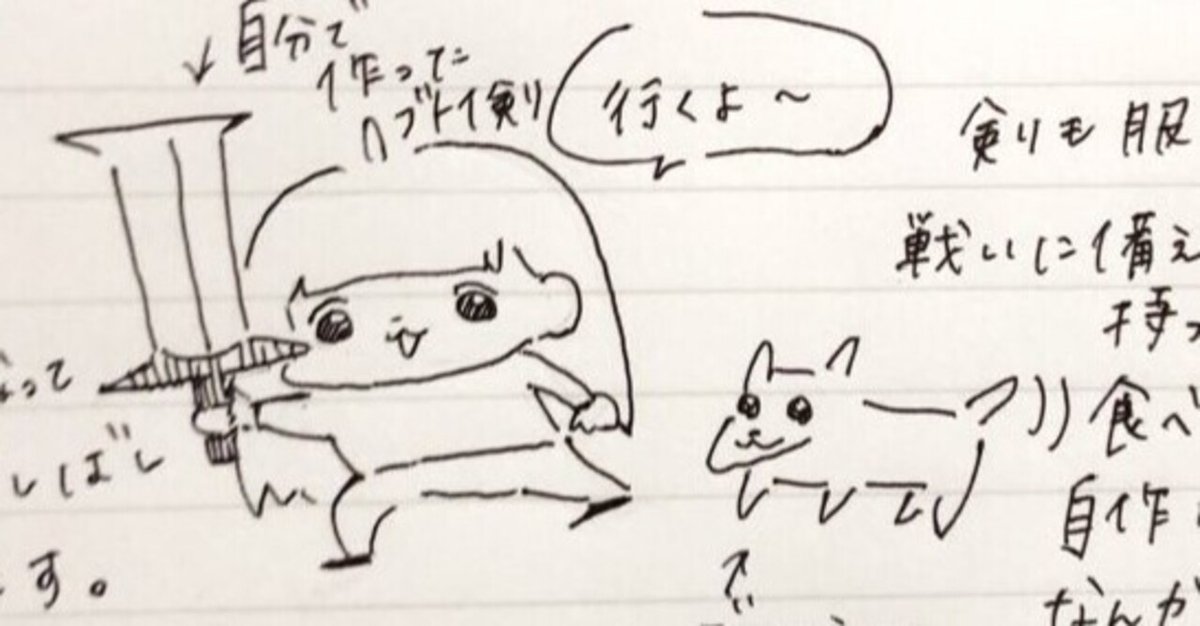 自分で
作った
ブトイ剣
行くよ～
剣も服
戦いに備え
持っ
って
食べ
しばし
自作
す。
なんか